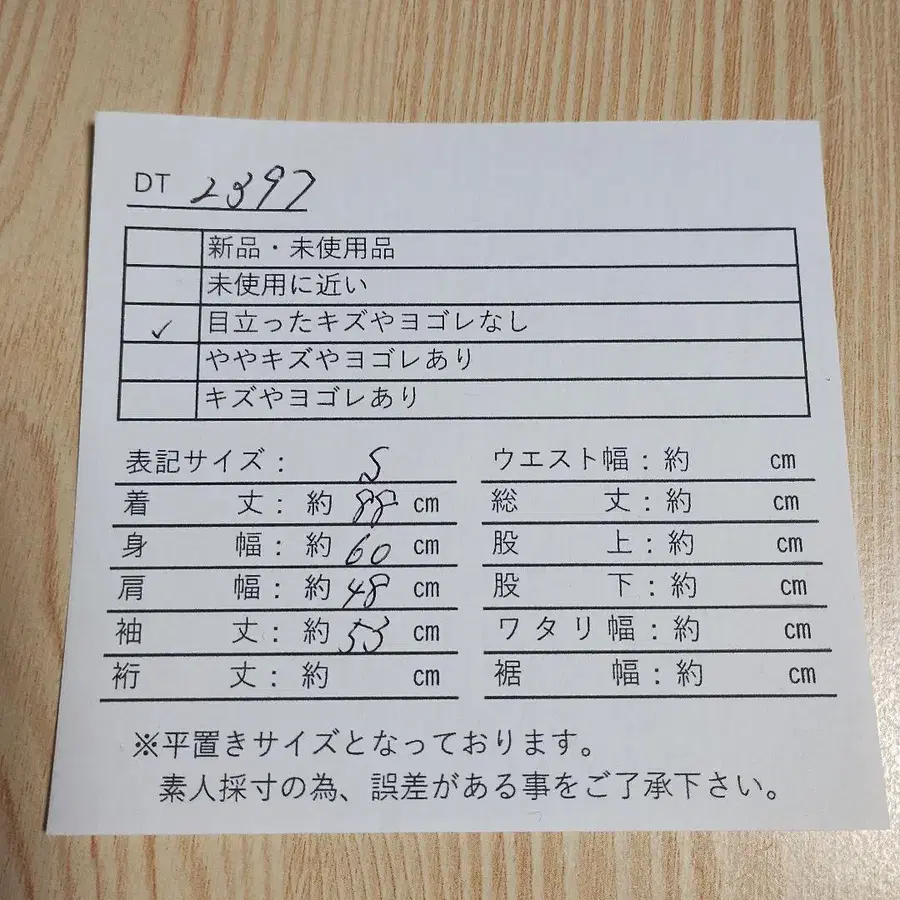 DT 2397
新品・未使用品
未使用に近い
✓ 目立ったキズやヨゴレなし
ややキズやヨゴレあり
キズやヨゴレあり
表記サイズ: S
着丈: 約 88 cm
身幅: 約 60 cm
肩幅: 約 48 cm
袖丈: 約 53 cm
裄丈: 約 cm
ウエスト幅: 約 cm
総丈: 約 cm
股上: 約 cm
股下: 約 cm
ワタリ幅: 約 cm
裾幅: 約 cm
※平置きサイズとなっております。
素人採寸の為、誤差がある事をご了承下さい。